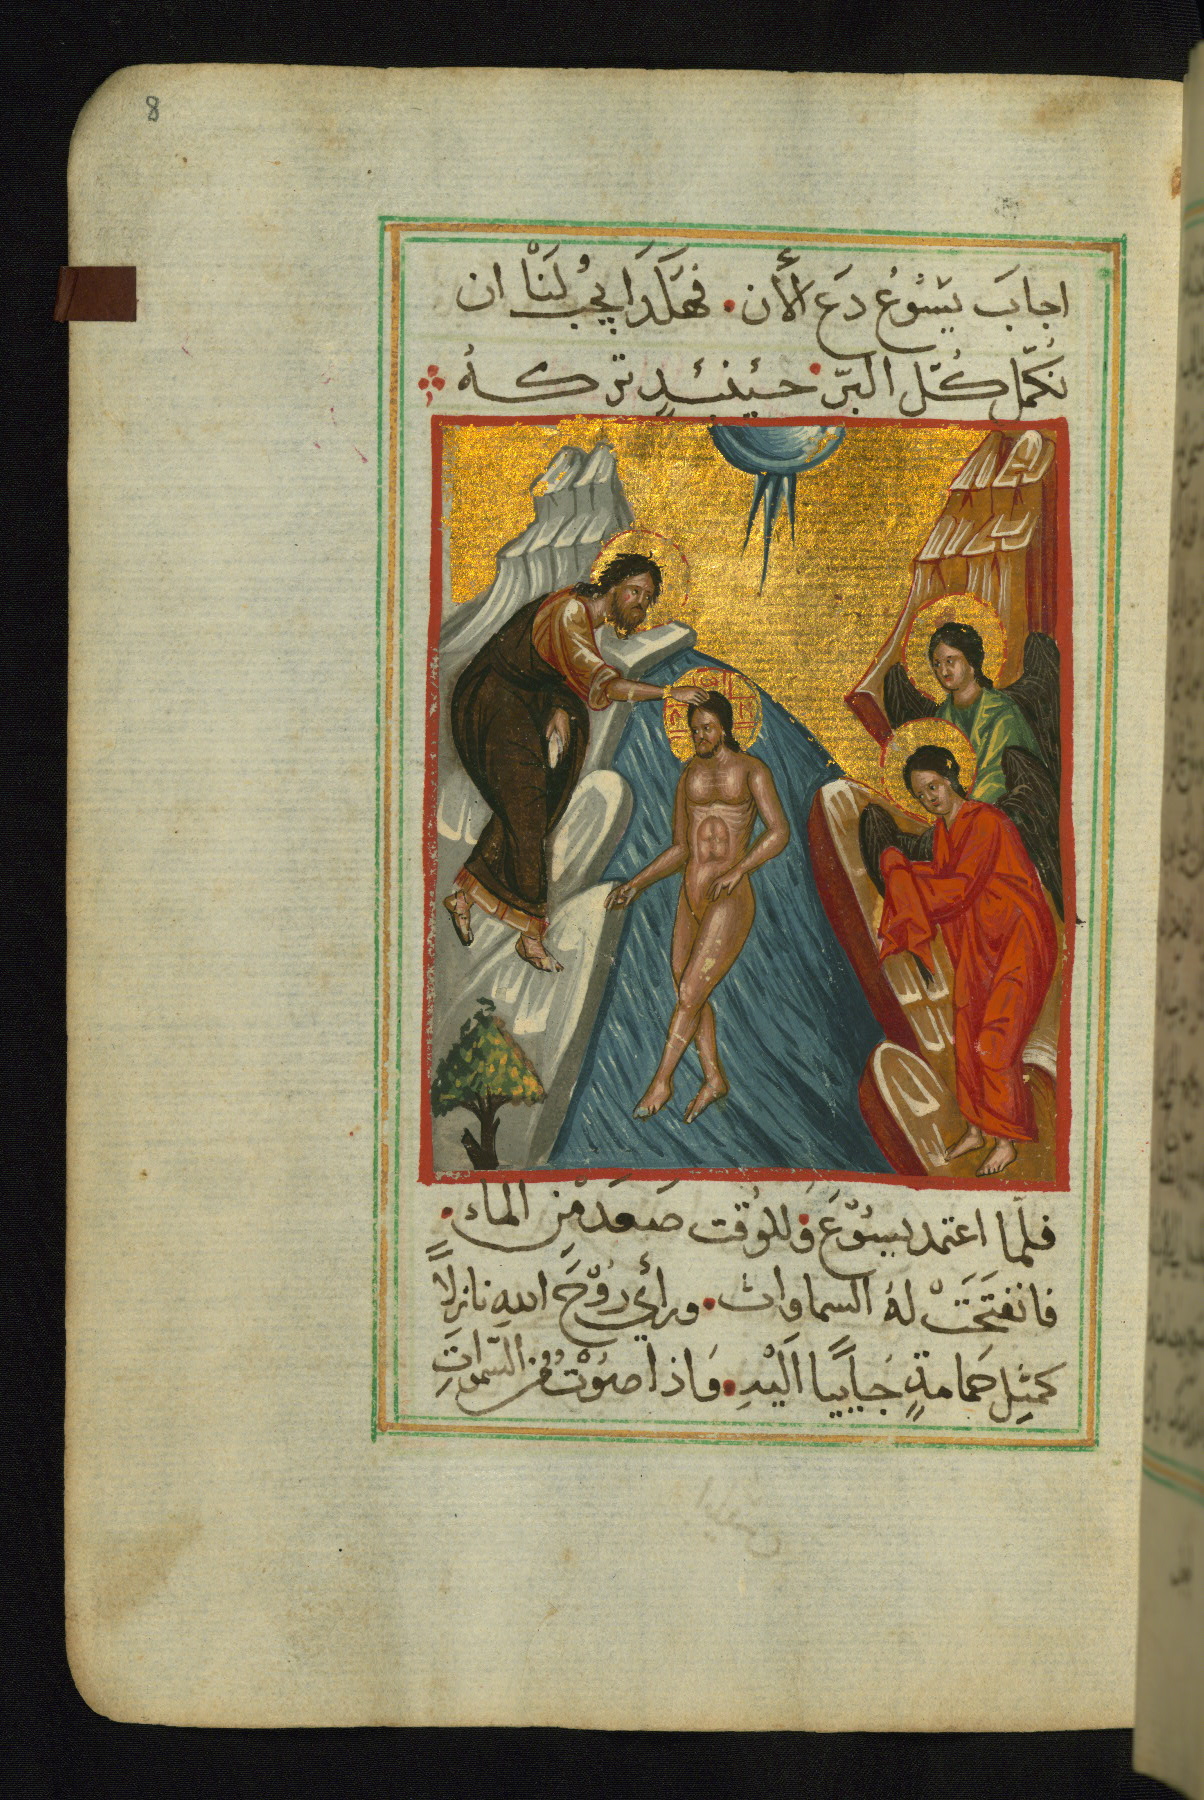 8
اجابَ يَسُوْعُ دَع الأن. فهَكَذَا يجبُ لَنَا ان
نُكمّل كُلّ البرّ. حينئذٍ تركهُ
فلمّا اعتمد يسُوْعَ وَللوُقت صَعَدَ مْن الماء.
فانفتَحَتْ لهُ السماوات. وراٌي رُوْحَ اللهِ نازلاً
كمثِل حَمامةٍ جَاييًا اَليْهِ. وَاذا صَوْتٌ مْن السَّموَاتِ